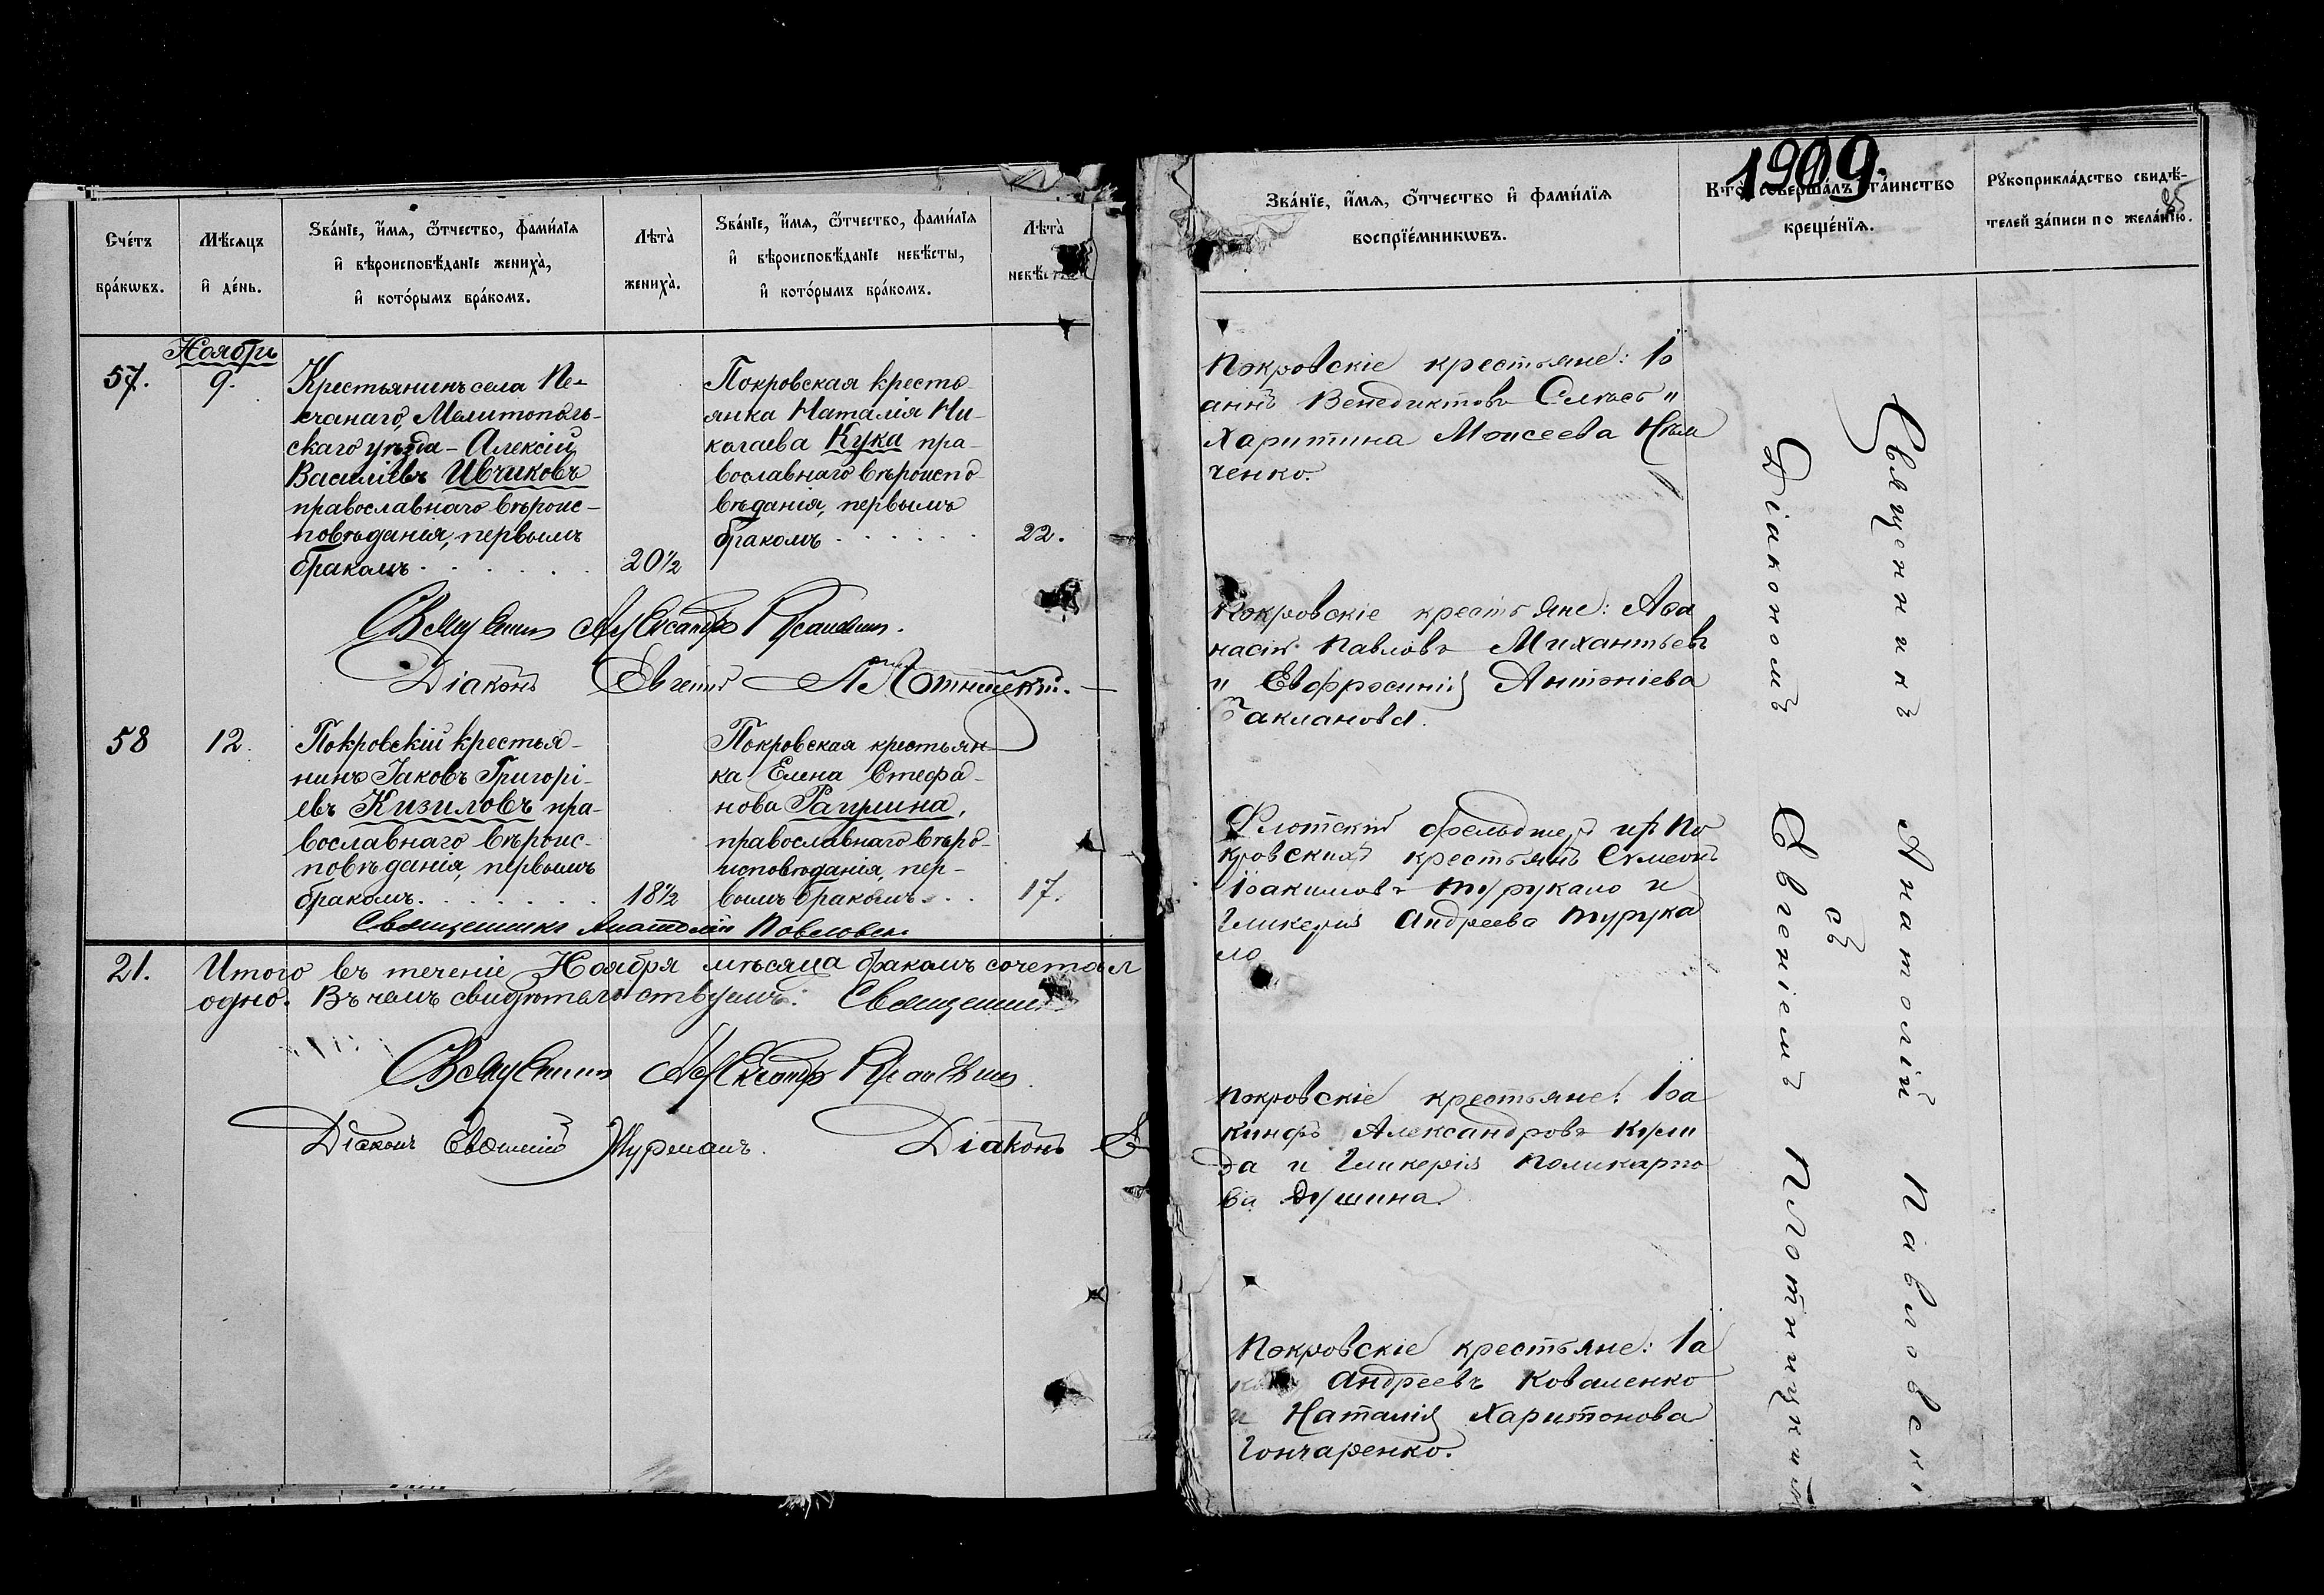 Счетъ
браковъ.
Мѣсяцъ
и день.
Званіе, имя, отчество, фамилія
и вѣроисповѣданіе жениха,
и которымъ бракомъ.
Лѣта
жениха.
Званіе, имя, отчество, фамилія
и вѣроисповѣданіе невѣсты,
и которымъ бракомъ.
Лѣта
Ноябрь
57.
9.
Крестьянинъ села Пе-
счанаго, Мелитополь-
скаго уѣзда - Алексій
Василіевъ Ивчиковъ
православнаго вѣроис-
повѣданія, первымъ
бракомъ
20½
Покровская кресть-
янка Наталія Ни-
колаева Кука пра-
вославнаго вѣроиспо-
вѣданія, первымъ
бракомъ
22.
Священникъ Александръ
Діаконъ Евгеній
58
12.
Покровскій крестья-
нинъ Іаковъ Григорі-
евъ Кизиловъ пра-
вославнаго вѣроис-
повѣданія, первымъ
бракомъ.
18½
Покровская крестьян-
ка Елена Стефа-
нова
православнаго вѣро-
исповѣданія, пер-
вымъ бракомъ
17.
Священникъ Анатолій
21.
Итого въ теченіе Ноября мѣсяца бракомъ
одно. Въ чемъ свидѣтельствуемъ: Священникъ
Священникъ Александръ
Діаконъ Евѳимій Журманъ.
Діаконъ
1909.
Званіе, имя, отчество и фамилія
воспріемниковъ.
Кто совершалъ таинство
крещенія.
Рукоприкладство свидѣ-
телей записи по желанію.
85
Покровскіе крестьяне: Іо
аннъ Венедиктовъ
Харитина Моисеева Нѣм
ченко.
Покровскіе крестьяне: Аѳа
насій Павловъ
и Евфросинія Антоніева
Бакланова.
Флотскій фельдшеръ изъ По
кровскихъ крестьянъ Симеонъ
Іоакимовъ Турукало и
Гликерія Андреева Турука
ло
Покровскіе крестьяне: Іоа
кинфъ Александровъ
да и Гликерія Поликарпо
ва Душина.
Покровскіе крестьяне: Іа
ковъ Андреевъ Коваленко
и Наталія Харитонова
Гончаренко.
Священникъ Анатолій
съ
Діакономъ Евгеніемъ Плотницкимъ